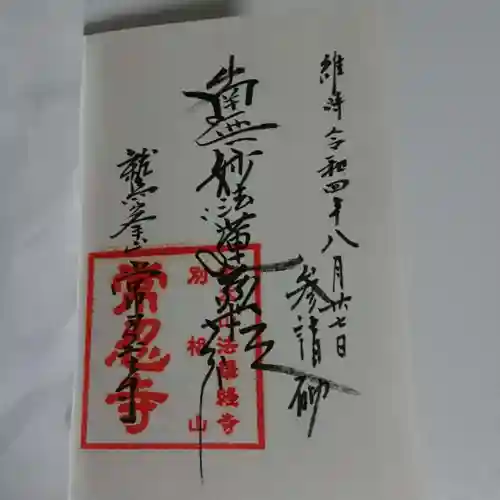 維時令和四年八月廿七日
参請砌
南無妙法蓮華経
鷲峯山 常忍寺
法華経寺
別格山
常忍寺